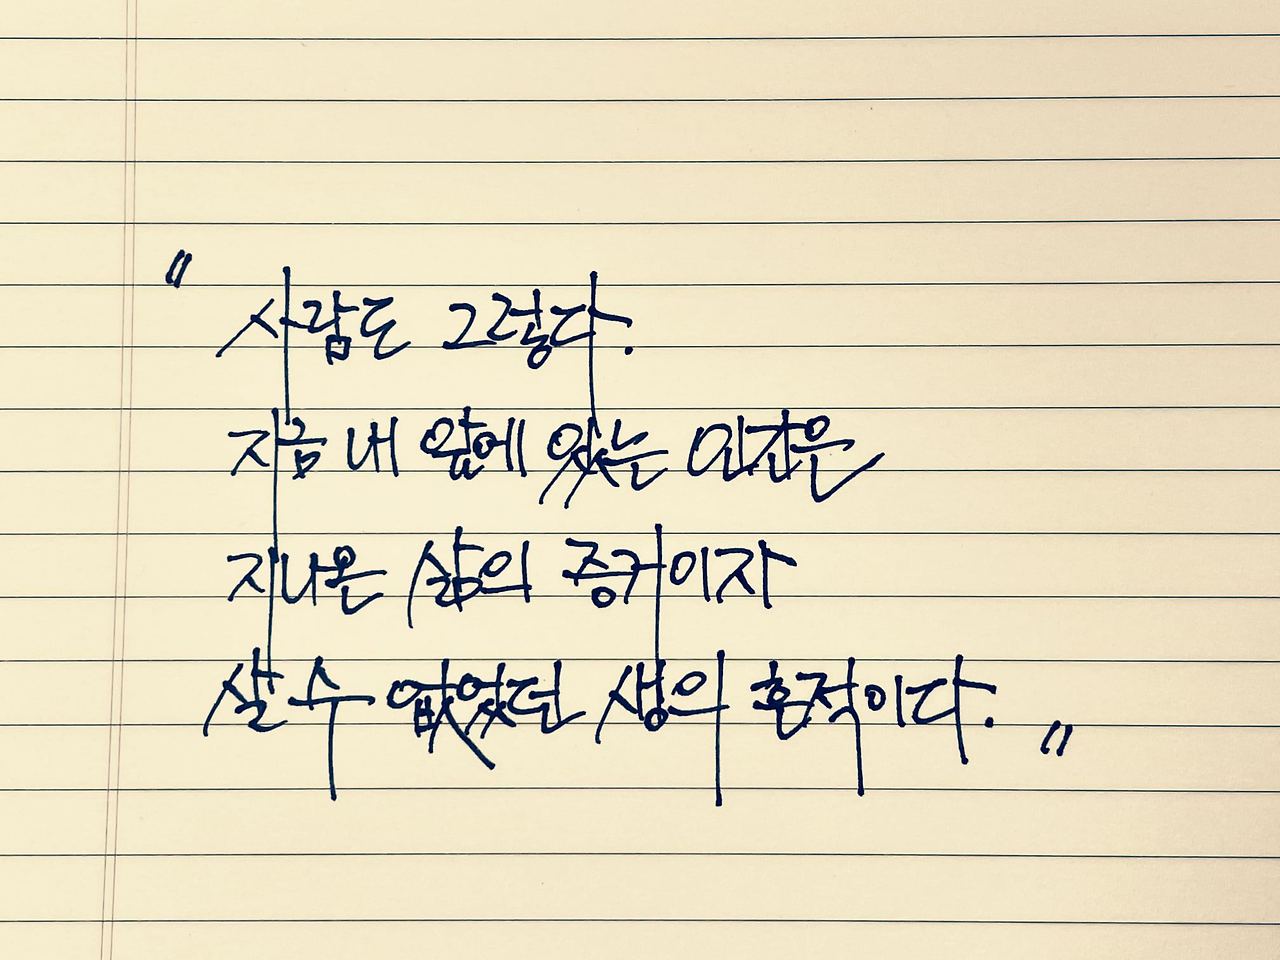 "사람도 그렇다.
지금 내 앞에 있는 인간은
지나온 삶의 증거이자
살 수 없었던 생의 흔적이다."